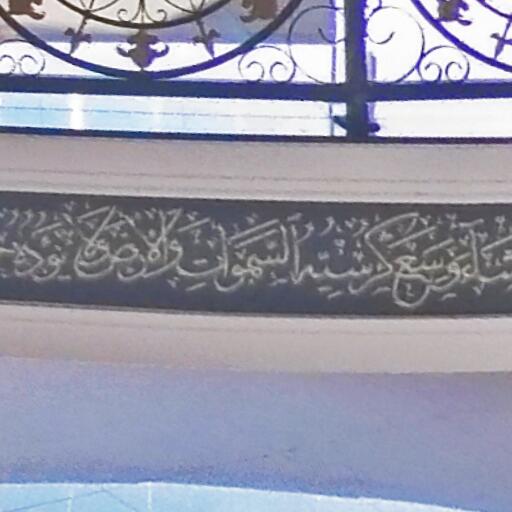 شَاءَ وَسِعَ كُرْسِيُّهُ السَّمَوَاتِ وَالْأَرْضَ وَلَا يَئُودُهُ